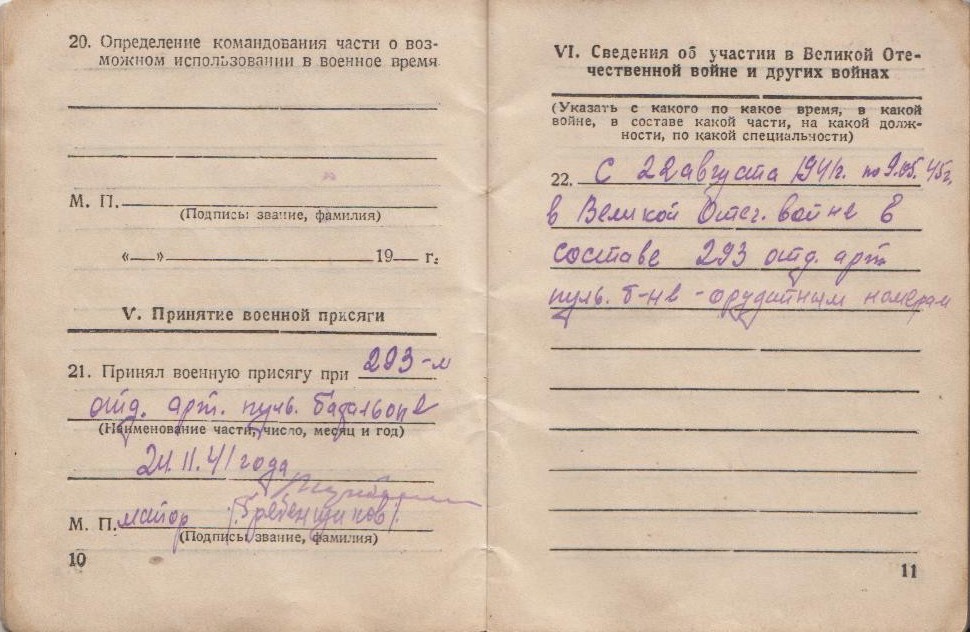 20. Определение командования части о воз-
можном использовании в военное время
М. П.
(Подпись звание, фамилия)
«—» 19— г.
V. Принятие военной присяги
21. Принял военную присягу при 293-м
отд. арт. пуль. батальоне
(Наименование части, число, месяц и год)
24.11.41 года
М. П. майор /Гребенщиков/.
(Подпись звание, фамилия)
10
VI. Сведения об участии в Великой Оте-
чественной войне и других войнах
(Указать с какого по какое время, в какой
войне, в составе какой части, на какой долж-
ности, по какой специальности)
22. С 22 августа 1941г. по 9.05.45г.
в Великой Отеч. войне в
составе 293 отд. арт
пуль. б-на - орудийным номером
11